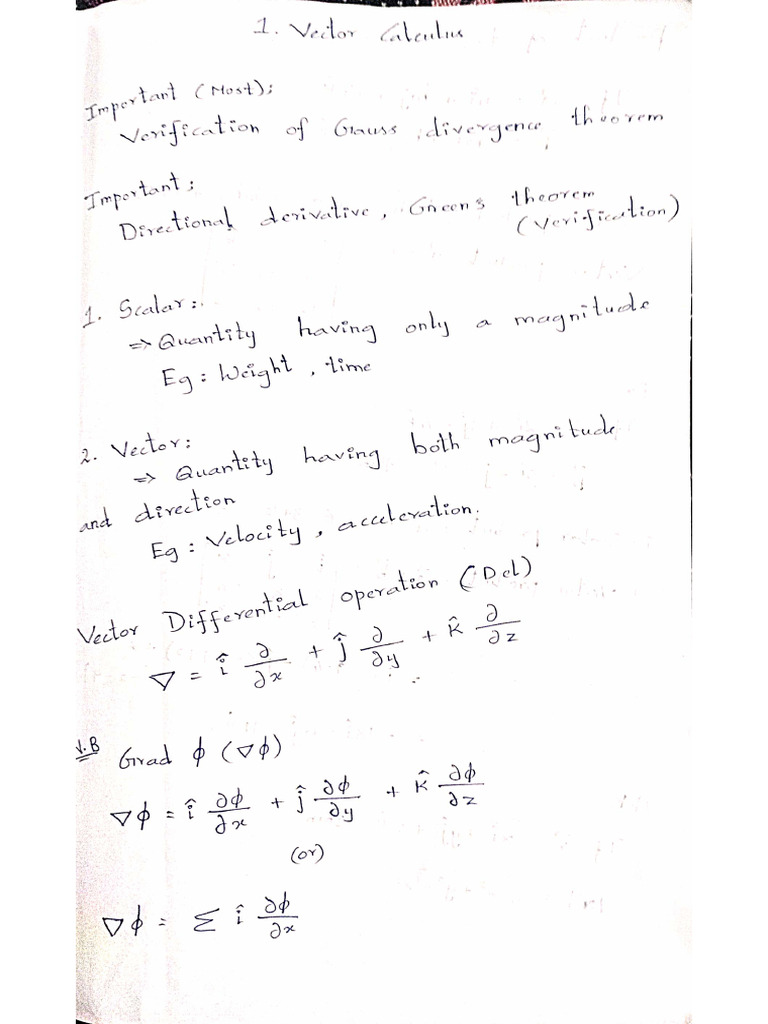 1. Vector Calculus
Important (Most);
Verification of Gauss divergence theorem
Important;
Directional derivative, Greens theorem
(Verification)
1. Scalar:
⇒ Quantity having only a magnitude
Eg: Weight, time
2. Vector:
⇒ Quantity having both magnitude
and direction
Eg: Velocity, acceleration.
Vector Differential operation (Del).
∇ = î ∂/∂x + ĵ ∂/∂y + k̂ ∂/∂z
Grad ϕ (∇ϕ)
∇ϕ = î ∂ϕ/∂x + ĵ ∂ϕ/∂y + k̂ ∂ϕ/∂z
(or)
∇ϕ = Σ î ∂ϕ/∂x